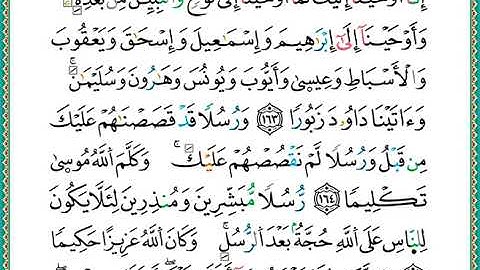 إِنَّآ أَوْحَيْنَآ إِلَيْكَ كَمَآ أَوْحَيْنَآ إِلَىٰ نُوحٍ وَٱلنَّبِيِّـۧنَ مِنۢ بَعْدِهِۦ
وَأَوْحَيْنَآ إِلَىٰٓ إِبْرَٰهِيمَ وَإِسْمَٰعِيلَ وَإِسْحَٰقَ وَيَعْقُوبَ
وَٱلْأَسْبَاطِ وَعِيسَىٰ وَأَيُّوبَ وَيُونُسَ وَهَٰرُونَ وَسُلَيْمَٰنَ ۚ
وَءَاتَيْنَا دَاوُۥدَ زَبُورًا ﴿١٦٣﴾ وَرُسُلًا قَدْ قَصَصْنَٰهُمْ عَلَيْكَ
مِن قَبْلُ وَرُسُلًا لَّمْ نَقْصُصْهُمْ عَلَيْكَ ۚ وَكَلَّمَ ٱللَّهُ مُوسَىٰ
تَكْلِيمًا ﴿١٦٤﴾ رُّسُلًا مُّبَشِّرِينَ وَمُنذِرِينَ لِئَلَّا يَكُونَ
لِلنَّاسِ عَلَى ٱللَّهِ حُجَّةٌۢ بَعْدَ ٱلرُّسُلِ ۚ وَكَانَ ٱللَّهُ عَزِيزًا حَكِيمًا